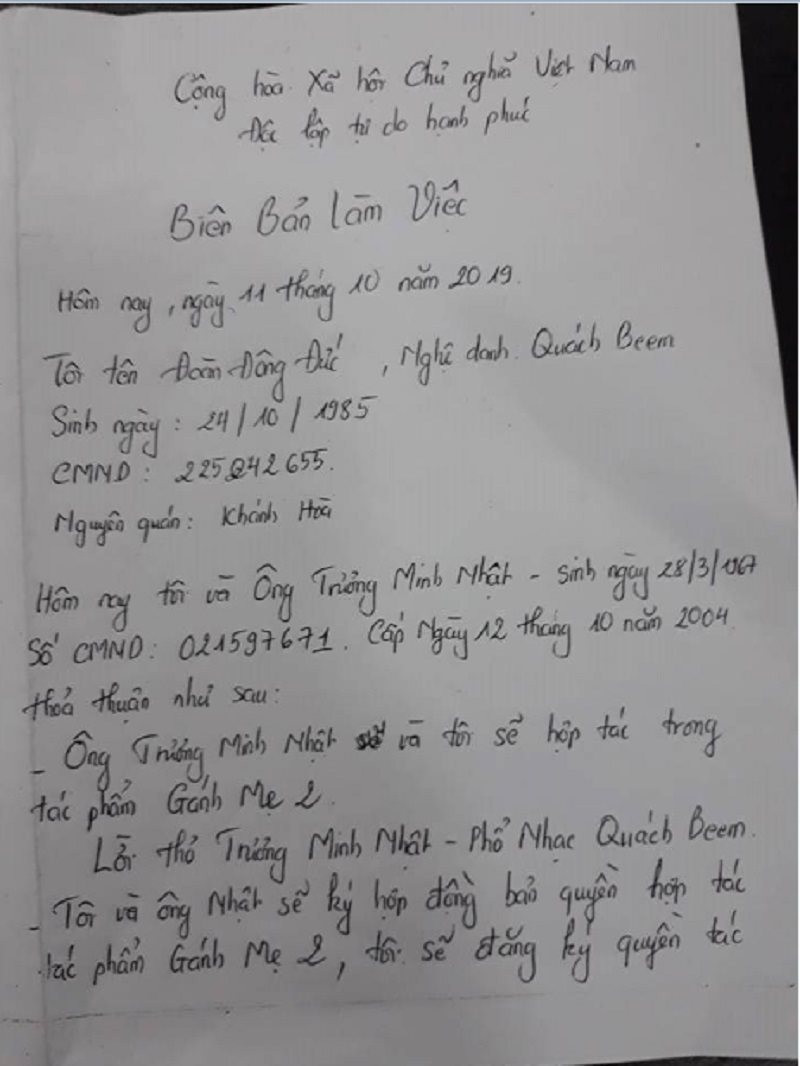 Cộng hòa Xã hội Chủ nghĩa Việt Nam
Độc lập tự do hạnh phúc
Biên Bản làm Việc
Hôm nay, ngày 11 tháng 10 năm 2019.
Tôi tên Đoàn Đông Đức, Nghệ danh. Quách Beem
Sinh ngày: 24/10/1985
CMND: 225242655.
Nguyên quán: Khánh Hoà
Hôm nay tôi và Ông Trương Minh Nhật - sinh ngày 28/3/1967
Số CMND: 021597671. Cấp Ngày 12 tháng 10 năm 2004
thoả thuận như sau:
- Ông Trương Minh Nhật và tôi sẽ hợp tác trong
tác phẩm Gánh Mẹ 2.
Lời thơ Trương Minh Nhật - Phổ Nhạc Quách Beem.
- Tôi và ông Nhật sẽ ký hợp đồng bản quyền hợp tác
tác phẩm Gánh Mẹ 2, tôi sẽ đăng ký quyền tác